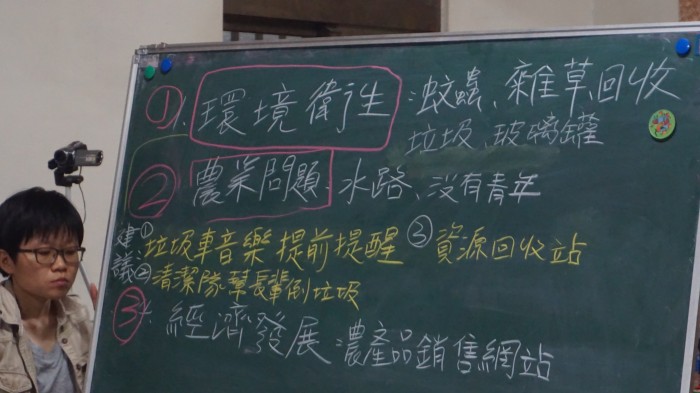 ①、環境衛生:蚊蟲、雜草、回收
垃圾、玻璃罐
②農業問題、水路、沒有青年
建議①垃圾車音樂提前提醒 ③資源回收站
②清潔隊幫長輩倒垃圾
③、經濟發展:農產品銷售網站